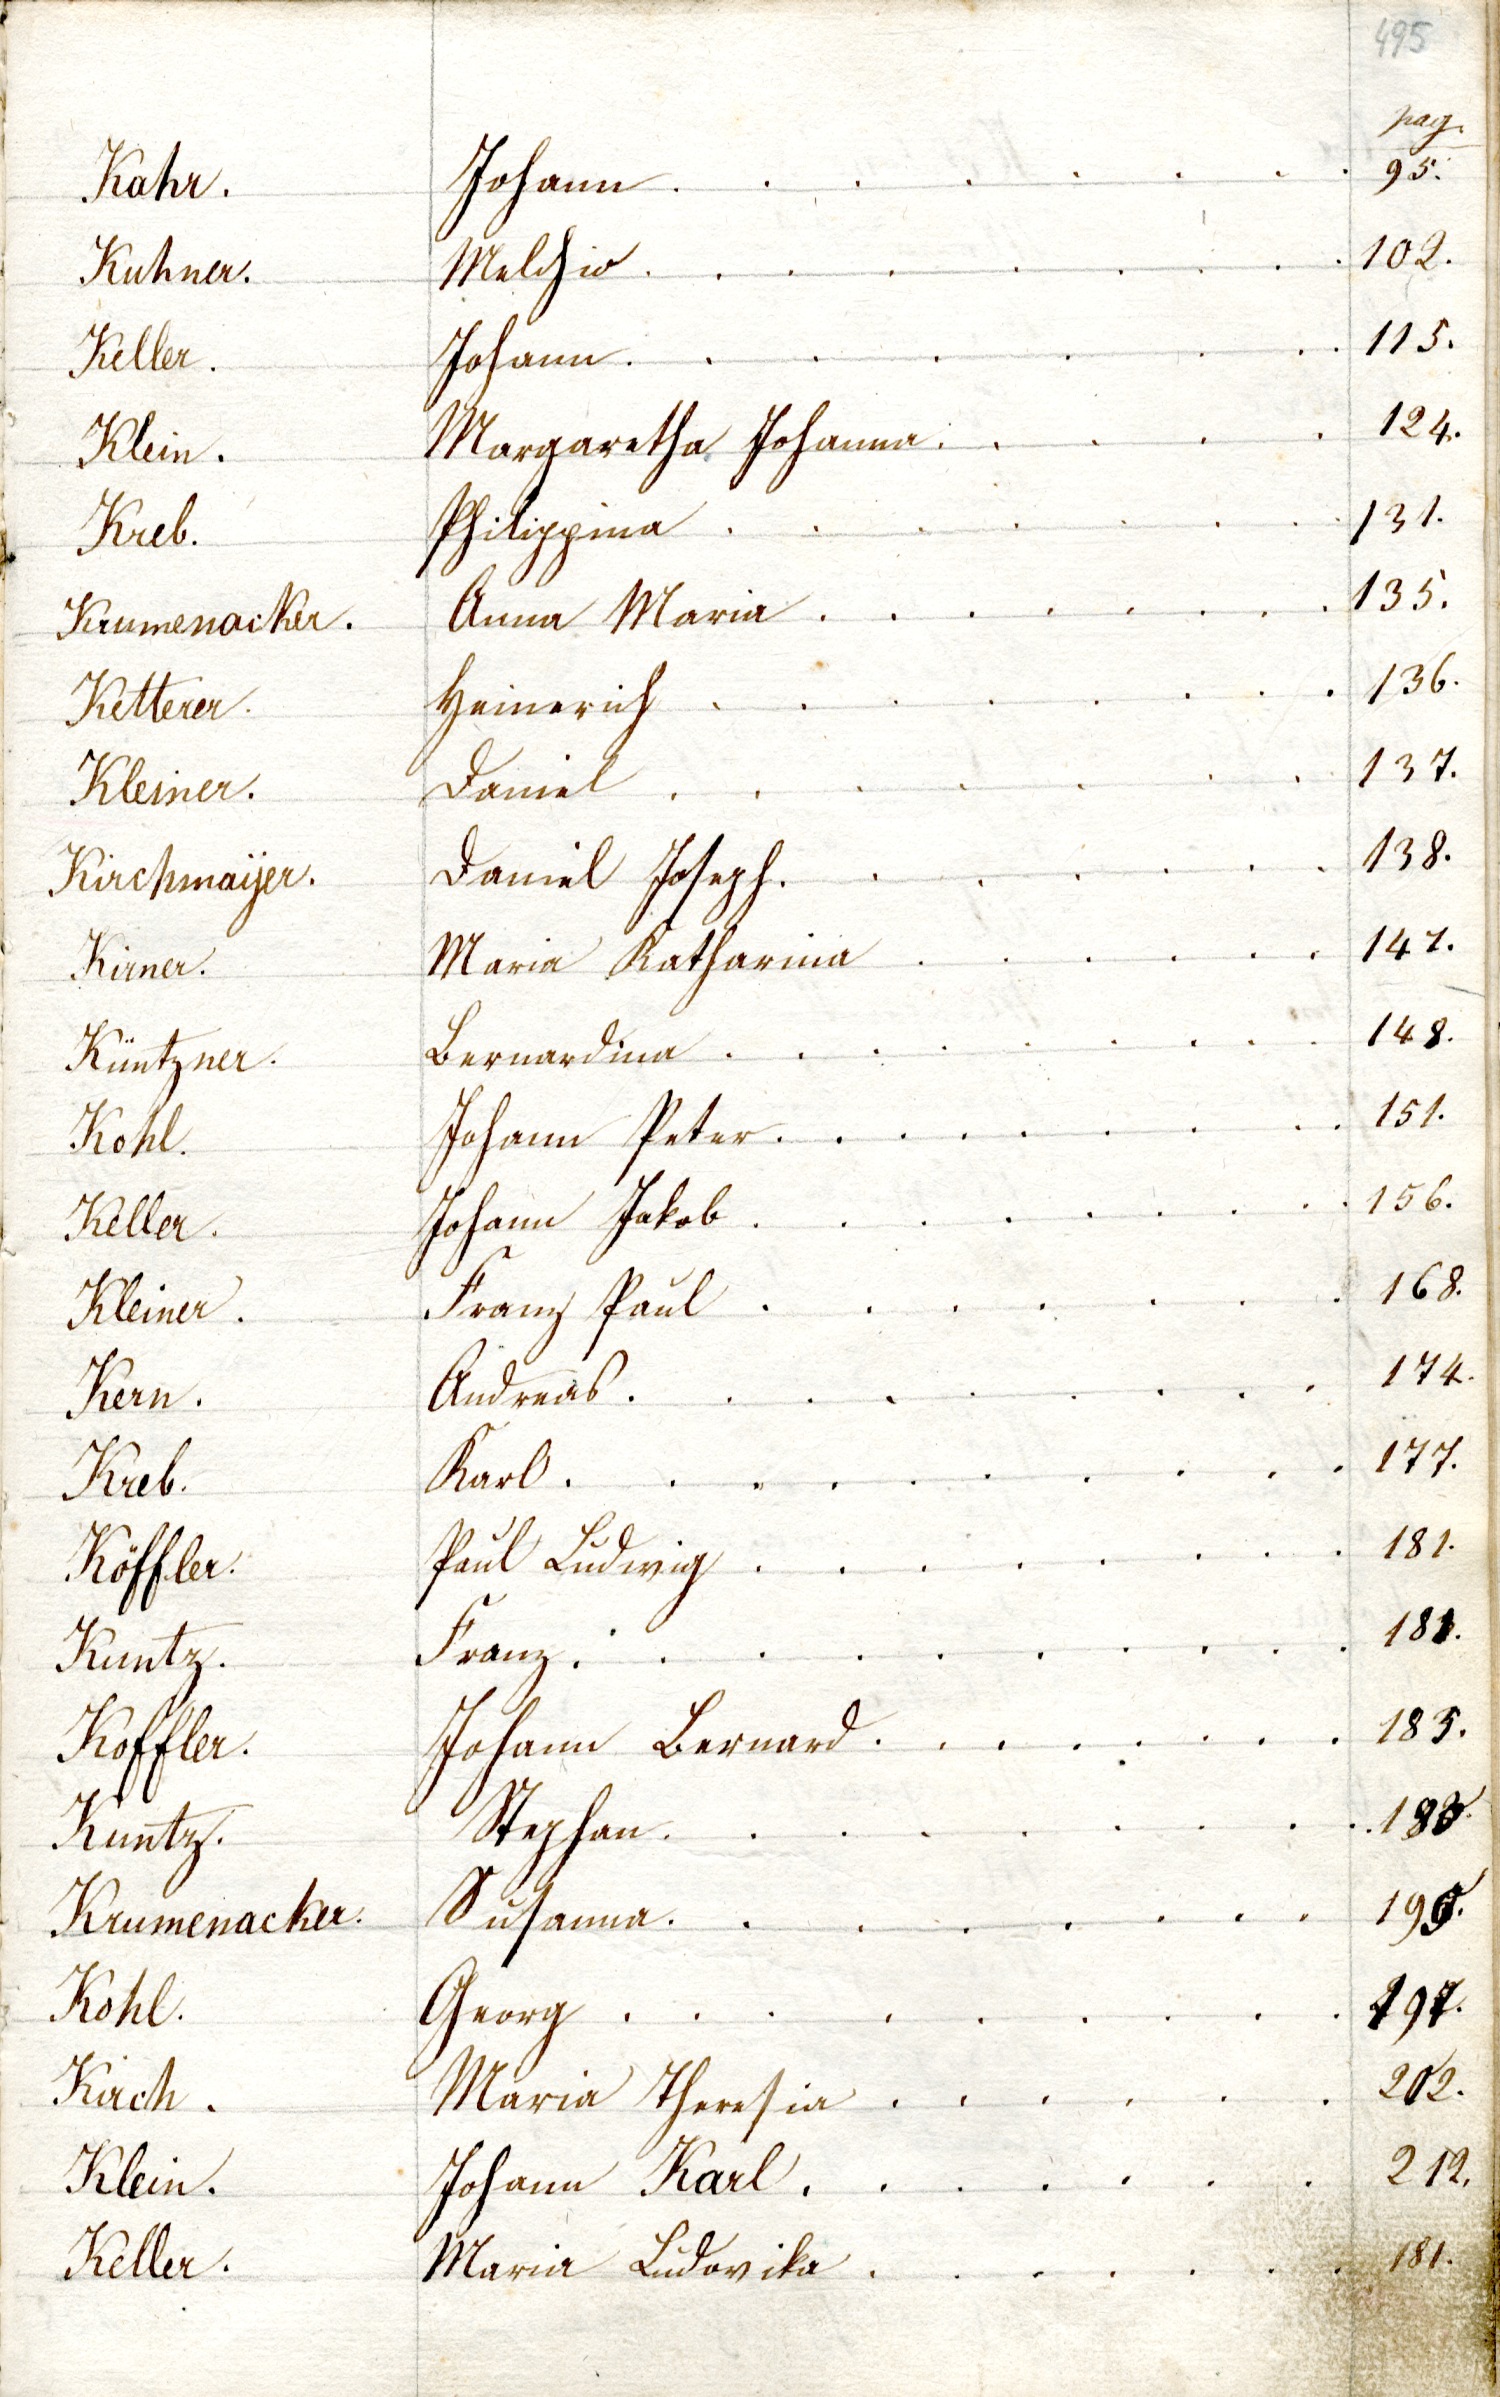 495
pag.
Kahr. Johann . . . . . . . 95.
Kuhner. Melchio . . . . . . . 102.
Keller. Johann . . . . . . . 115.
Klein. Margaretha Johanna . . . . 124.
Kreb. Philippina . . . . . . . 131.
Krumenacker. Anna Maria . . . . . . . 135.
Ketterer. Heinerich . . . . . . . 136.
Kleiner. Daniel . . . . . . . 137.
Kirchmaÿer. Daniel Joseph . . . . . . 138.
Kirner. Maria Katharina . . . . . . 147.
Küntzner. Bernardina . . . . . . . . 148.
Kohl. Johann Peter . . . . . . . . 151.
Keller. Johann Jakob . . . . . . . . 156.
Kleiner. Franz Paul . . . . . . . 168.
Kern. Andreas . . . . . . . . 174.
Kreb. Karl . . . . . . . . . 177.
Köffler. Paul Ludwig . . . . . . . . 181.
Kuntz. Franz . . . . . . . . .
Koffler. Johann Bernard . . . . . . . 185.
Kuntz. Stephan . . . . . . . .
Krumenacker. Susanna . . . . . . . .
Kohl. Georg . . . . . . . . 197.
Kirch. Maria Theresia . . . . . . 202.
Klein. Johann Karl . . . . . . 212.
Keller. Maria Ludovika . . . . . . . 181.